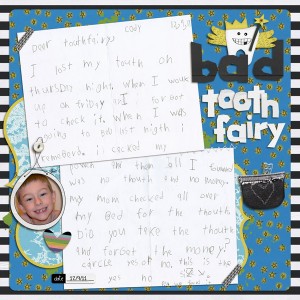 Dear toothfairy
cody
I lost my touth on
thursday night, when I would
up on friday I for got
to check it. When I was
going to bed last nigth I
remebord. I cecked my
and then all I found
was no touth and no money.
my mom checked all over
my bed for the touth.
Did you take the touth
and forgot the money?
carcle yes or no. this is the
yes no
bad
tooth
fairy
date 12/9/11